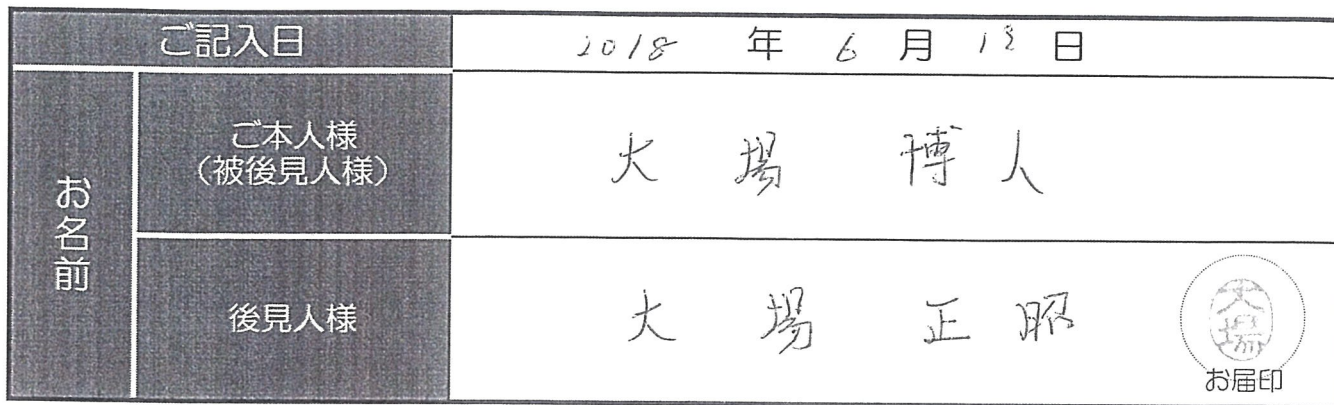 ご記入日
2018 年 6 月 13 日
お名前
ご本人様
（被後見人様）
大場 博人
後見人様
大場 正昭
大場
お届印